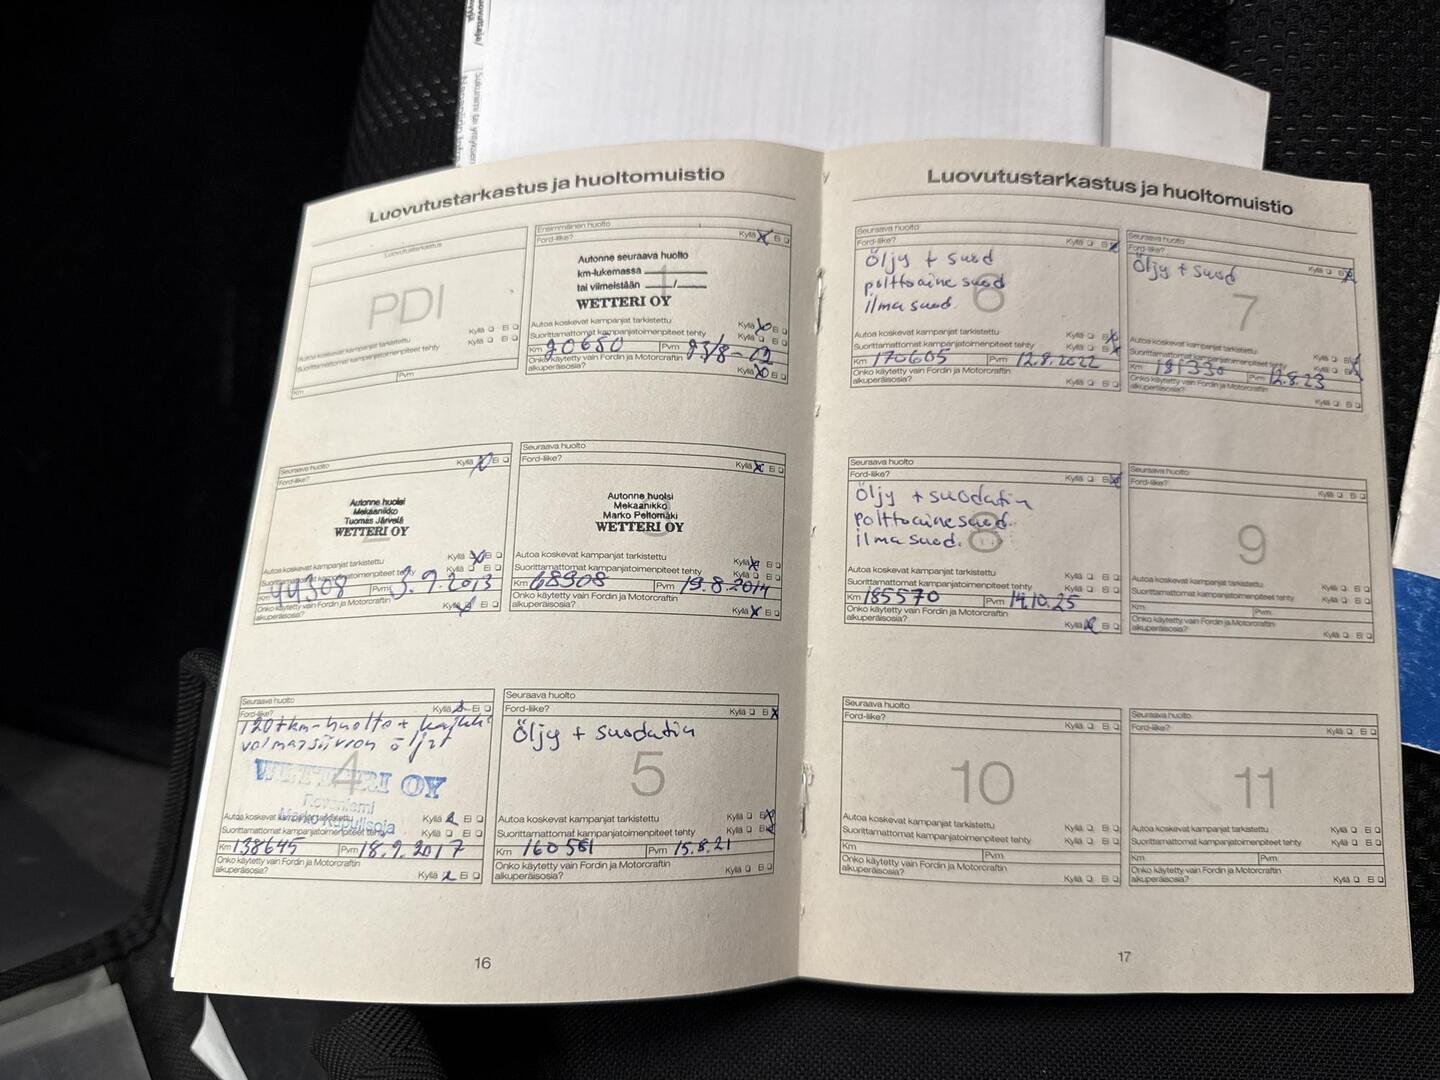 Luovutustarkastus ja huoltomuistio
Luovutustarkastus
PDI
Kyllä Ei
Autoa koskevat kampanjat tarkistettu
Suorittamattomat kampanjatoimenpiteet tehty Kyllä Ei
Km Pvm
Ensimmäinen huolto
Ford-liike? Kyllä X Ei
1
Autonne seuraava huolto
km-lukemassa
tai viimeistään /
WETTERI OY
Autoa koskevat kampanjat tarkistettu Kyllä Ei
Suorittamattomat kampanjatoimenpiteet tehty Kyllä Ei
Km 20680 Pvm 23/8-12
Onko käytetty vain Fordin ja Motorcraftin
alkuperäisosia? Kyllä Ei
Seuraava huolto
Ford-liike? Kyllä Ei
2
Autonne huolsi
Mekaanikko
Tuomas Järvelä
WETTERI OY
Autoa koskevat kampanjat tarkistettu Kyllä Ei
Suorittamattomat kampanjatoimenpiteet tehty Kyllä Ei
Km 44308 Pvm 3.9.2013
Onko käytetty vain Fordin ja Motorcraftin
alkuperäisosia? Kyllä Ei
Seuraava huolto
Ford-liike? Kyllä X Ei
3
Autonne huolsi
Mekaanikko
Marko Peltomäki
WETTERI OY
Autoa koskevat kampanjat tarkistettu Kyllä X Ei
Suorittamattomat kampanjatoimenpiteet tehty Kyllä Ei
Km 68908 Pvm 19.8.2014
Onko käytetty vain Fordin ja Motorcraftin
alkuperäisosia? Kyllä X Ei
Seuraava huolto
Ford-liike? Kyllä Ei
120tkm-huolto + kaikki
voimansiirron öljyt
4
WETTERI OY
Rovaniemi
Autoa koskevat kampanjat tarkistettu Kyllä Ei
Suorittamattomat kampanjatoimenpiteet tehty Kyllä Ei
Km 138645 Pvm 18.9.2017
Onko käytetty vain Fordin ja Motorcraftin
alkuperäisosia? Kyllä Ei
Seuraava huolto
Ford-liike? Kyllä Ei X
Öljy + suodatin
5
Autoa koskevat kampanjat tarkistettu Kyllä Ei
Suorittamattomat kampanjatoimenpiteet tehty Kyllä Ei
Km 160561 Pvm 15.8.21
Onko käytetty vain Fordin ja Motorcraftin
alkuperäisosia? Kyllä Ei
16
Luovutustarkastus ja huoltomuistio
Seuraava huolto
Ford-liike? Kyllä Ei X
Öljy + suod
polttoaine suod
ilma suod.
6
Autoa koskevat kampanjat tarkistettu Kyllä Ei
Suorittamattomat kampanjatoimenpiteet tehty Kyllä Ei
Km 170605 Pvm 12.8.2022
Onko käytetty vain Fordin ja Motorcraftin
alkuperäisosia? Kyllä Ei
Seuraava huolto
Ford-liike? Kyllä Ei X
Öljy + suod
7
Autoa koskevat kampanjat tarkistettu Kyllä Ei
Suorittamattomat kampanjatoimenpiteet tehty Kyllä Ei
Km 181330 Pvm 12.8.23
Onko käytetty vain Fordin ja Motorcraftin
alkuperäisosia? Kyllä Ei
Seuraava huolto
Ford-liike? Kyllä Ei X
Öljy + suodatin
polttoaine suod.
ilma suod.
8
Autoa koskevat kampanjat tarkistettu Kyllä Ei
Suorittamattomat kampanjatoimenpiteet tehty Kyllä Ei
Km 185570 Pvm 14.10.25
Onko käytetty vain Fordin ja Motorcraftin
alkuperäisosia? Kyllä Ei
Seuraava huolto
Ford-liike? Kyllä Ei
9
Autoa koskevat kampanjat tarkistettu Kyllä Ei
Suorittamattomat kampanjatoimenpiteet tehty Kyllä Ei
Km Pvm
Onko käytetty vain Fordin ja Motorcraftin
alkuperäisosia? Kyllä Ei
Seuraava huolto
Ford-liike? Kyllä Ei
10
Autoa koskevat kampanjat tarkistettu Kyllä Ei
Suorittamattomat kampanjatoimenpiteet tehty Kyllä Ei
Km Pvm
Onko käytetty vain Fordin ja Motorcraftin
alkuperäisosia? Kyllä Ei
Seuraava huolto
Ford-liike? Kyllä Ei
11
Autoa koskevat kampanjat tarkistettu Kyllä Ei
Suorittamattomat kampanjatoimenpiteet tehty Kyllä Ei
Km Pvm
Onko käytetty vain Fordin ja Motorcraftin
alkuperäisosia? Kyllä Ei
17